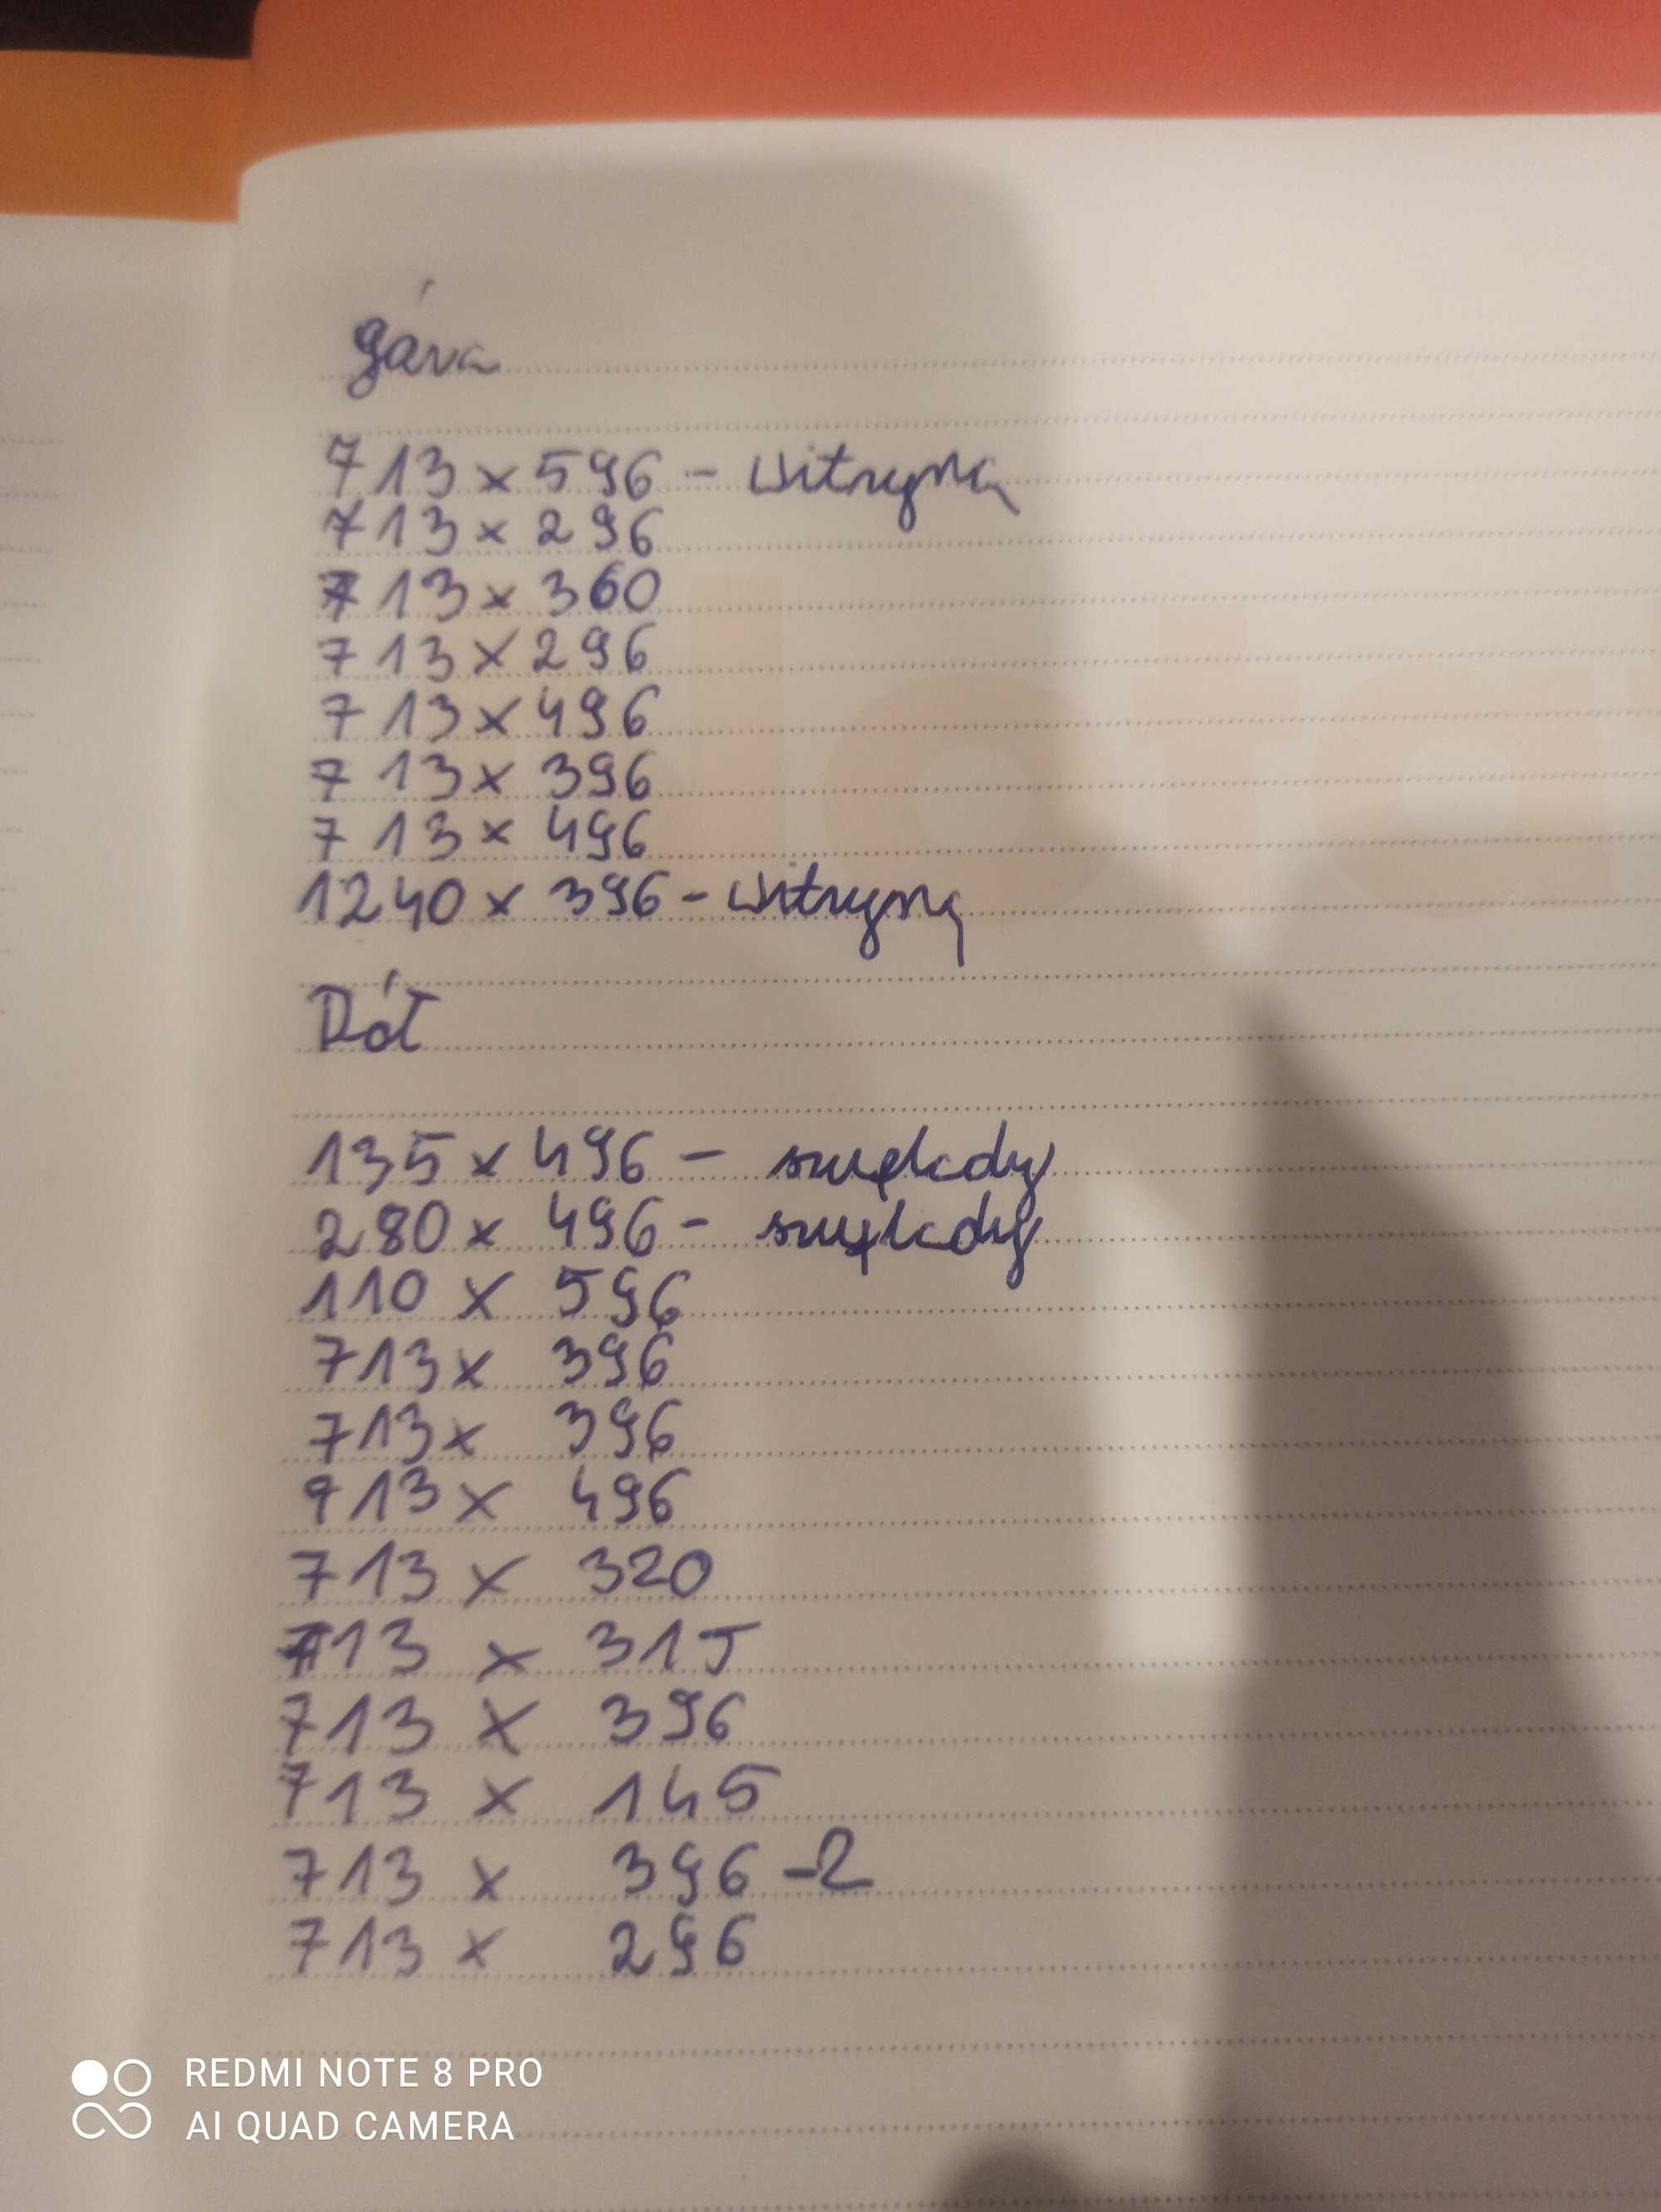 góra
713 x 596 - witryna
713 x 296
713 x 360
713 x 296
713 x 496
713 x 396
713 x 496
1240 x 396 - witryna
Dół
135 x 496 - szuflady
280 x 496 - szuflady
110 x 596
713 x 396
713 x 396
713 x 496
713 x 320
713 x 315
713 x 396
713 x 145
713 x 396 - 2
713 x 296
REDMI NOTE 8 PRO
AI QUAD CAMERA